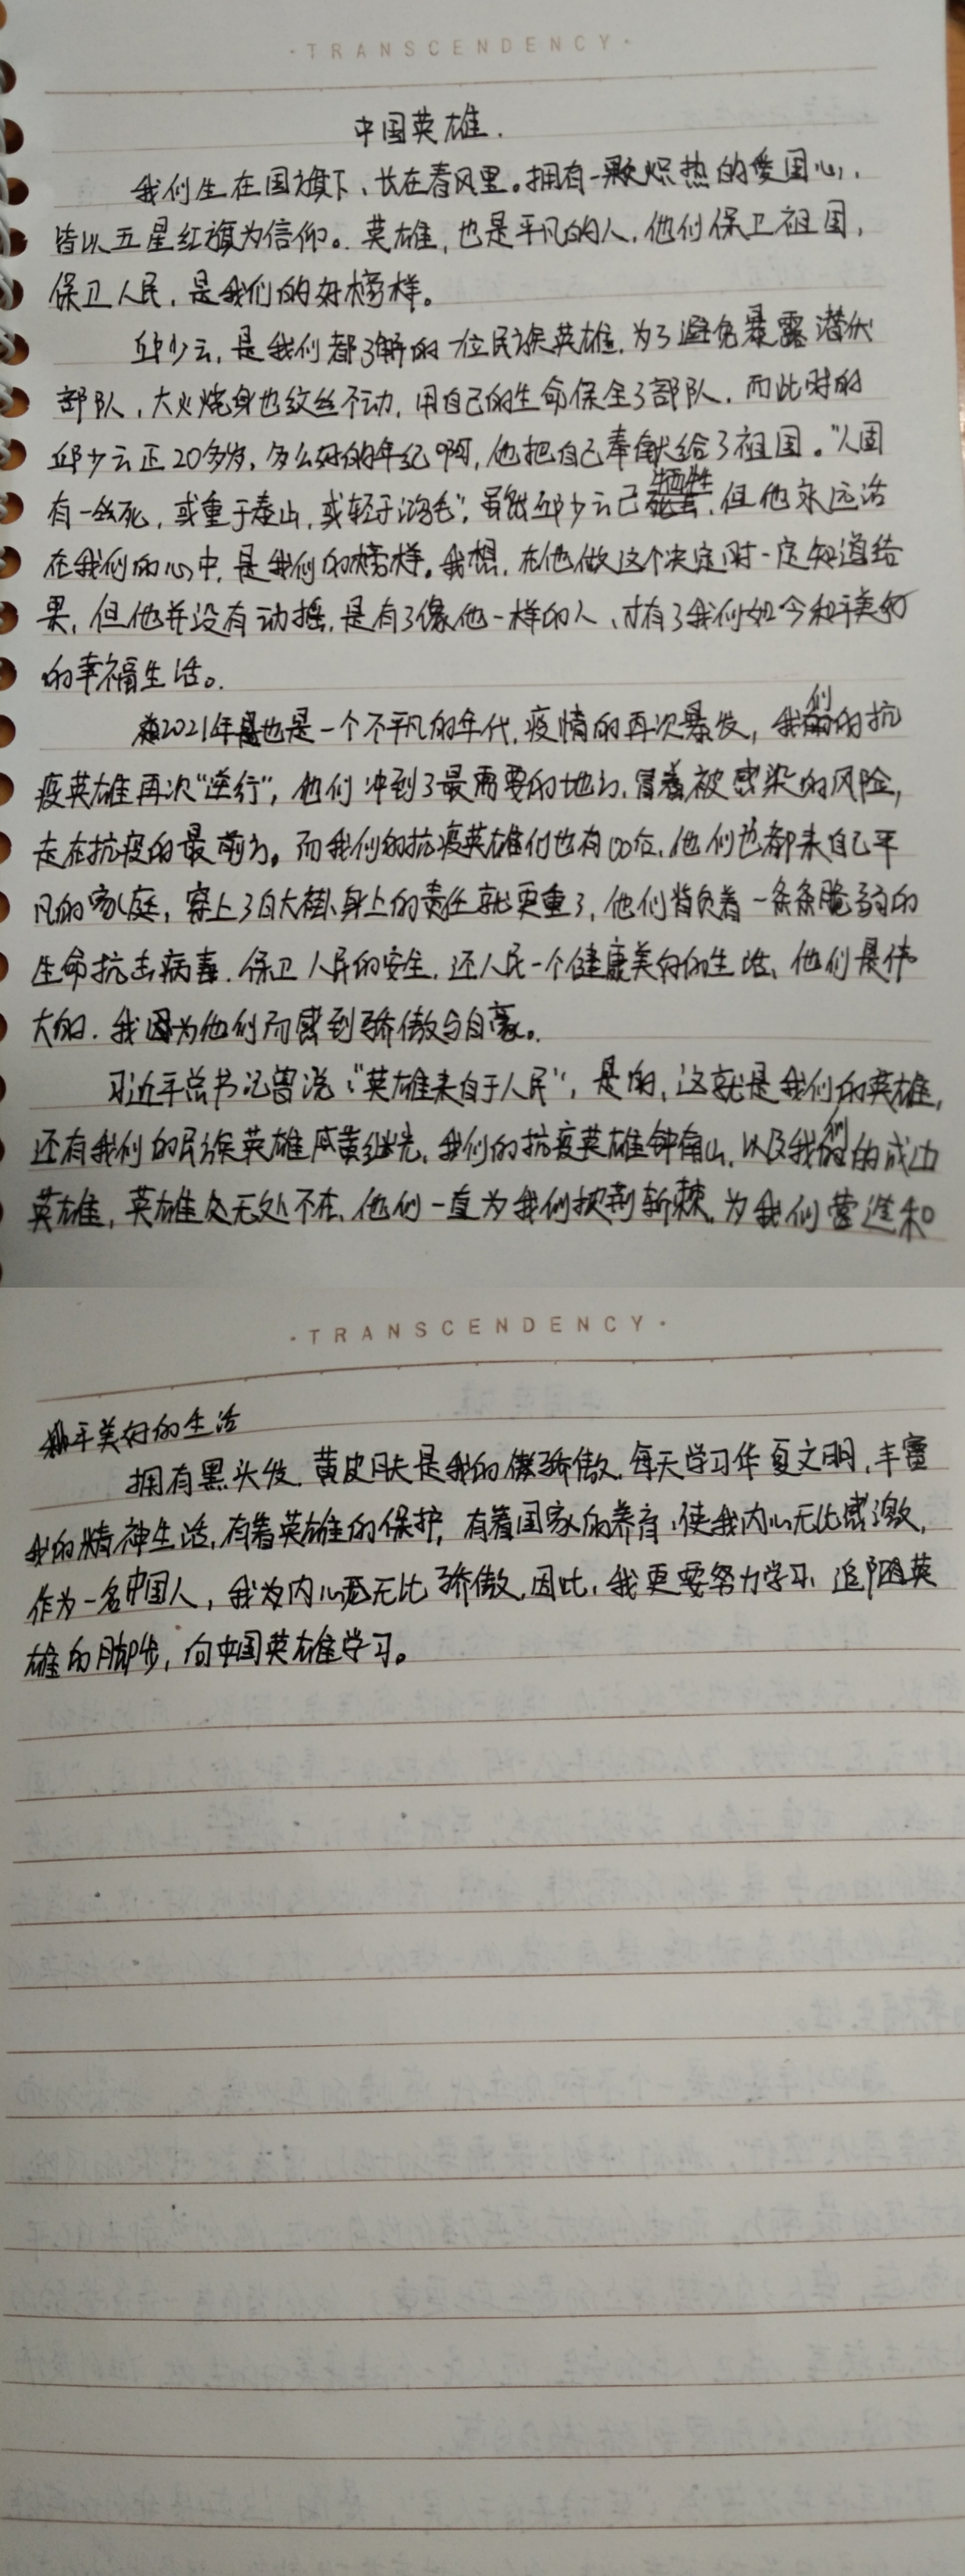 ·TRANSCENDENCY·
中国英雄.
我们生在国旗下、长在春风里。拥有一颗炽热的爱国心,
皆以五星红旗为信仰。英雄,也是平凡的人,他们保卫祖国,
保卫人民,是我们的好榜样。
邱少云,是我们都了解的一位民族英雄,为了避免暴露潜伏
部队,大火烧身也纹丝不动,用自己的生命保全了部队,而此时的
邱少云正20多岁,多么好的年纪啊,他把自己奉献给了祖国。"人固
有一死,或重于泰山,或轻于鸿毛",虽然邱少云已牺牲,但他永远活
在我们的心中,是我们的榜样。我想,在他做这个决定时一定知道结
果,但他并没有动摇,是有了像他一样的人,才有了我们如今和平美好
的幸福生活。
2021年也是一个不平凡的年代,疫情的再次暴发,我们的抗
疫英雄再次"逆行",他们冲到了最需要的地方,冒着被感染的风险,
走在抗疫的最前方。而我们的抗疫英雄们也有00后,他们也都来自己平
凡的家庭,穿上了白大褂身上的责任就更重了,他们背负着一条条脆弱的
生命抗击病毒,保卫人民的安全,还人民一个健康美好的生活,他们是伟
大的,我因为他们而感到骄傲与自豪。
习近平总书记曾说:"英雄来自于人民",是的,这就是我们的英雄,
还有我们的民族英雄黄继光,我们的抗疫英雄钟南山,以及我们的戍边
英雄,英雄无处不在,他们一直为我们披荆斩棘,为我们营造和
·TRANSCENDENCY·
平美好的生活
拥有黑头发,黄皮肤是我的骄傲,每天学习华夏文明,丰富
我的精神生活,有着英雄的保护,有着国家的养育,使我内心无比感激,
作为一名中国人,我内心无比骄傲,因此,我更要努力学习,追随英
雄的脚步,向中国英雄学习。